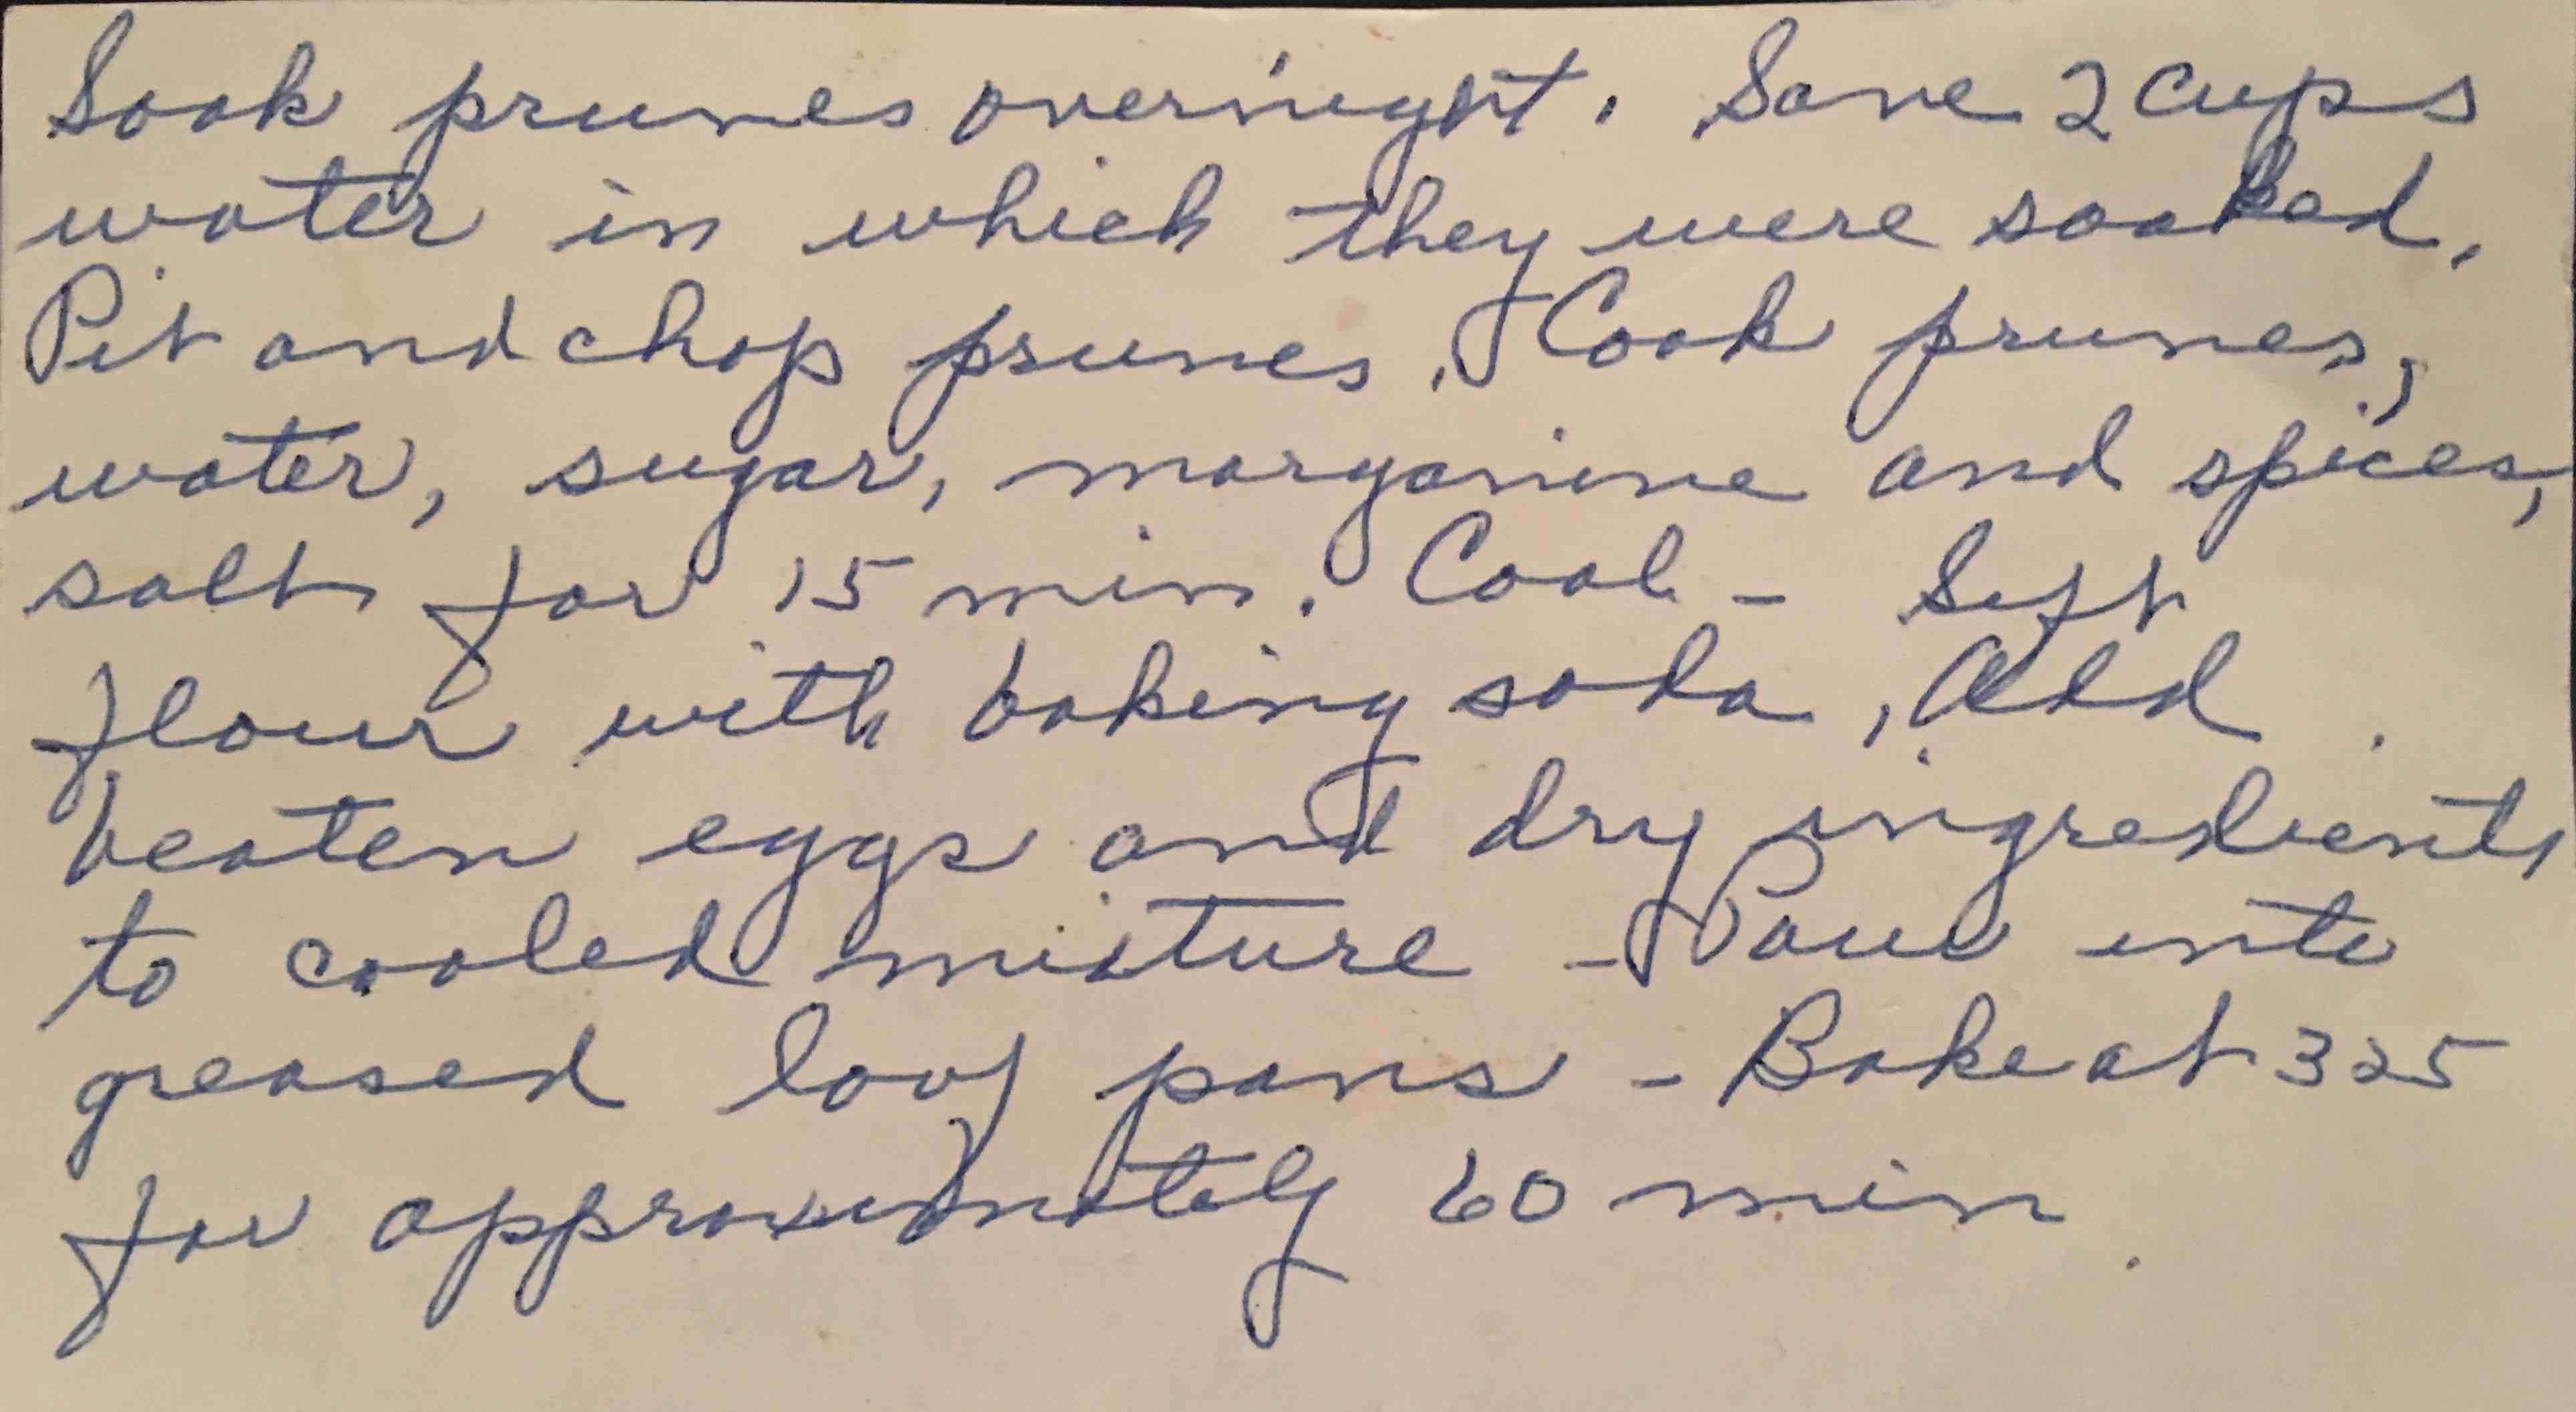 Soak prunes overnight. Save 2 cups
water in which they were soaked.
Pit and chop prunes. Cook prunes,
water, sugar, margarine and spices,
salt for 15 min. Cool - Sift
flour with baking soda, Add
beaten eggs and dry ingredients
to cooled mixture - Pour into
greased loaf pans - Bake at 325
for approximately 60 min.